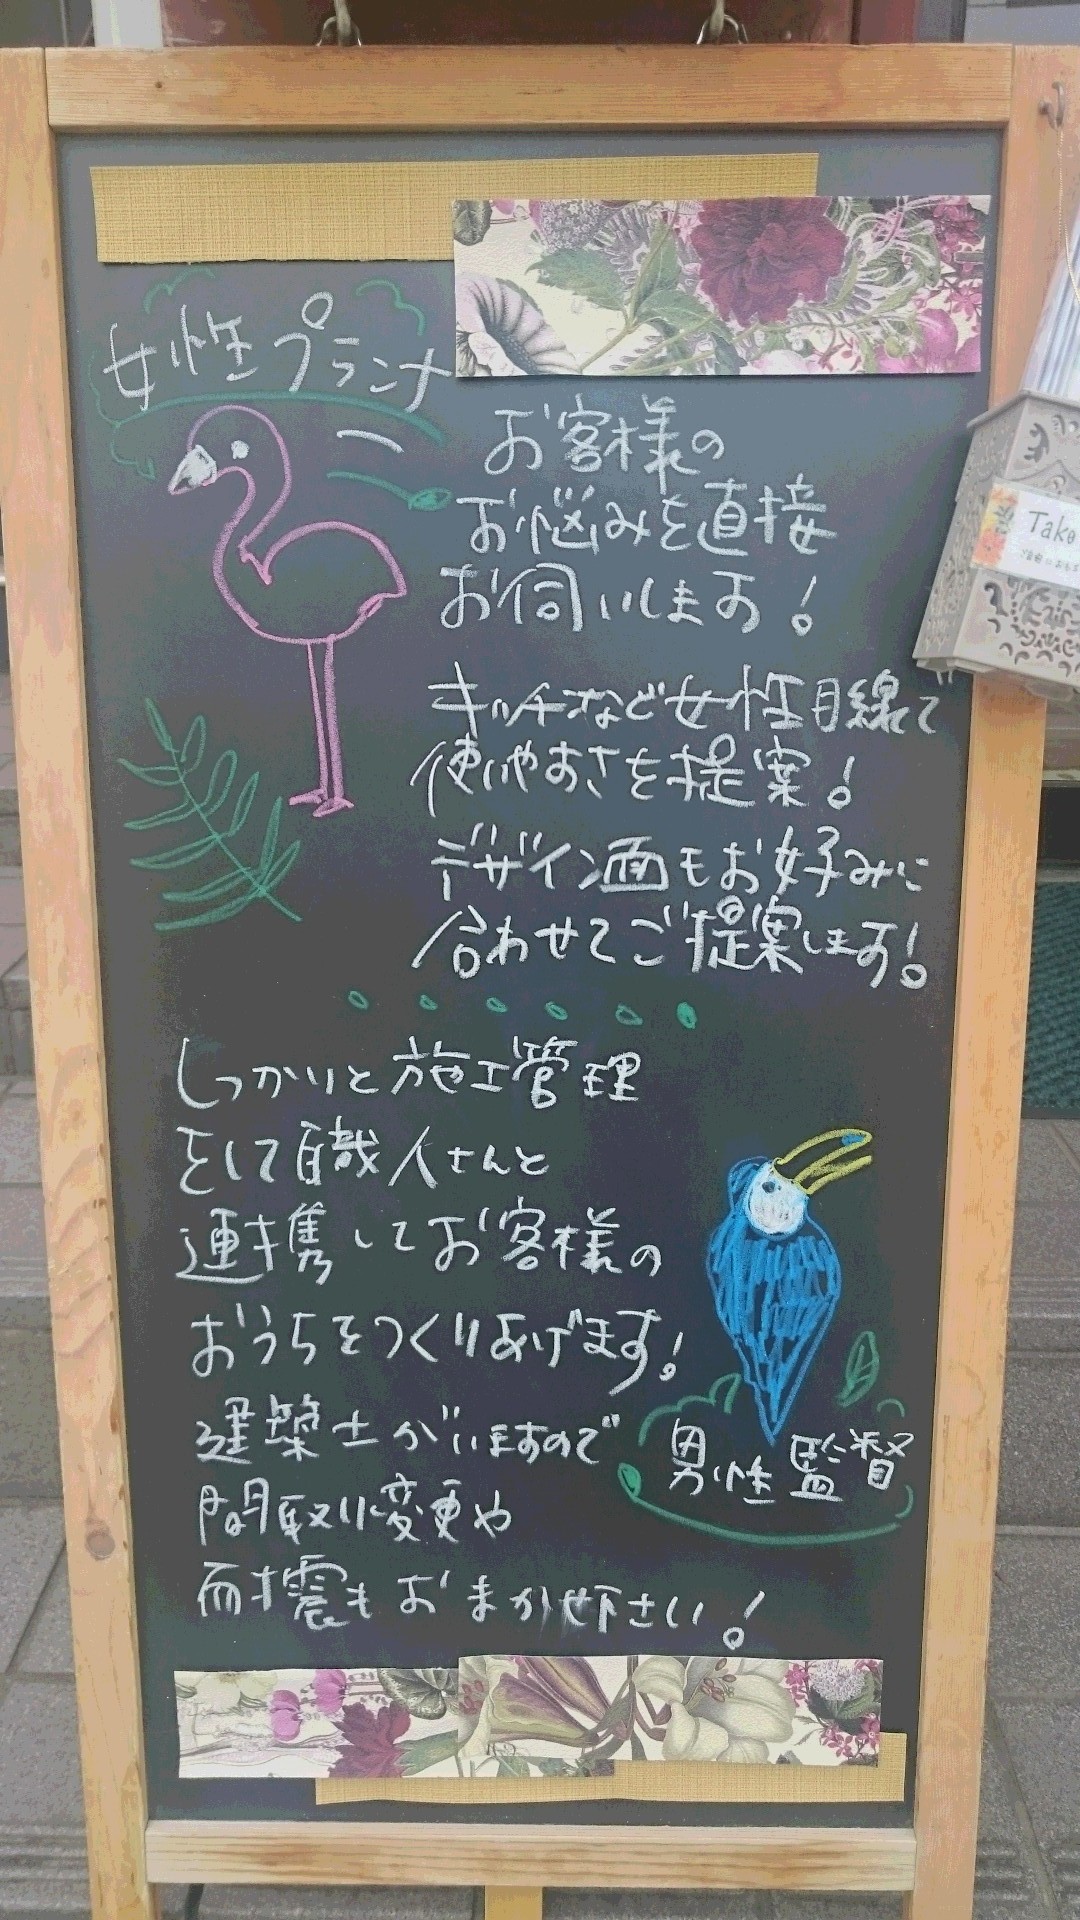 女性プランナー
お客様の
お悩みを直接
お伺いします!
キッチなど女性目線で
使いやすさを提案!
デザイン面もお好みに
合わせてご提案します!
しっかりと施工管理
をして職人さんと
連携してお客様の
おうちをつくりあげます!
建築士がいますので
間取り変更や
耐震もおまかせ下さい!
男性監督
Take